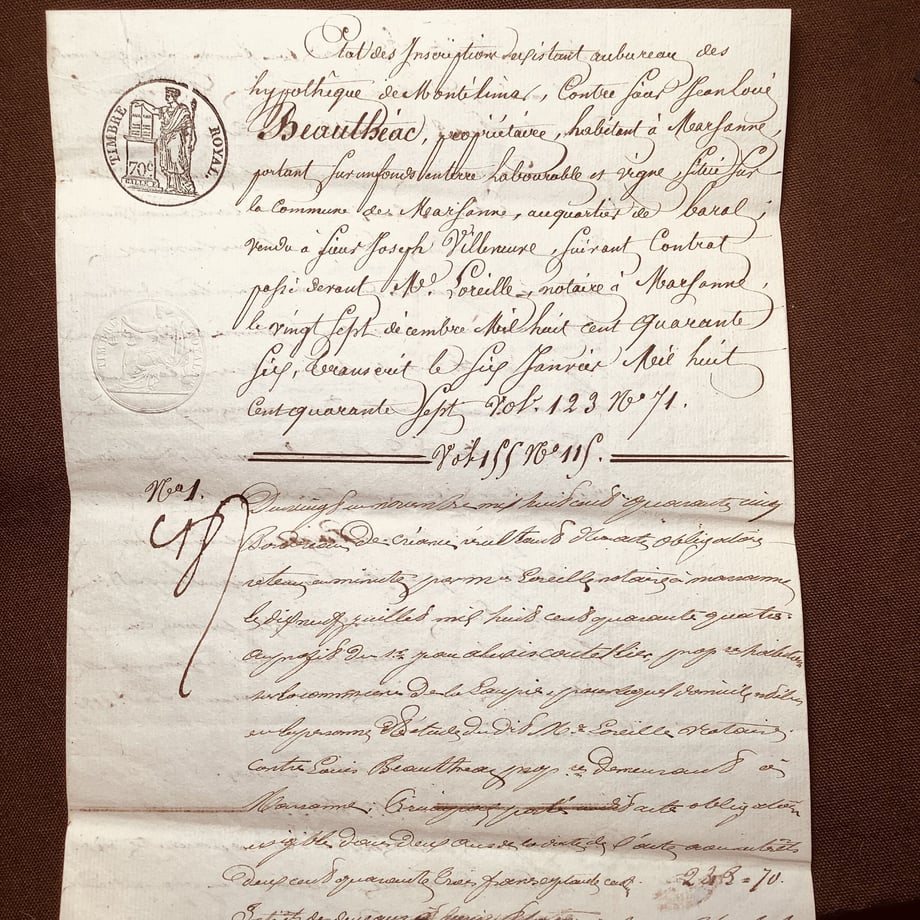 TIMBRE ROYAL
70c
Etat des Inscription subsistant au bureau des
hypothêque de Montélimar, Contre Sieur Jean Louis
Beauthéac, propriétaire, habitant à Marsanne,
portant sur un fonds en terre Labourable et vigne, Situé Sur
la Commune de Marsanne, au quartier de baral,
vendu à Sieur Joseph Villeneuve, suivant Contrat
passé devant Me. Loreille, notaire à Marsanne,
le vingt Sept décembre Mil huit cent quarante
Six, transcrit le Six Janvier Mil huit
Cent quarante Sept Vol. 123 No 71.
Vol. 155 No 115.
No 1.
Du vingt un novembre mil huit cent quarante cinq
Bordereau de créance résultant d'un acte obligation
retenu a minute par me Loreille notaire à marsanne
le dix neuf juillet mil huit cent quarante quatre
au profit du sr paul alexis prop re habitant
sur la commune de la Laupie, pour lequel domicile
en la personne & Etude du dit Me Loreille Notaire
Contre Louis Beautheac prop re demeurant à
Marsanne, acte obligation
exigible dans deux ans de la date de l'acte
deux cent quarante trois francs 243 = 70.